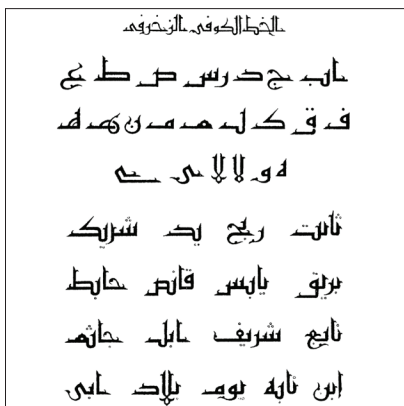 الخط الكوفي الزخرفي
ا ب ج د ر س ص ط ع
ف ق ك ل م م ن ه ه
ه و لا لا ى ے
ثابت ريح يد شريك
بريق يابس قانص حابط
تابع شريف ابل جاثم
ابن نابه يوم بلاد حابي